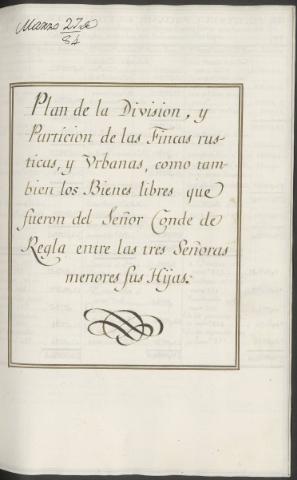 Marzo 27 de
84
Plan de la Division, y
Particion de las Fincas rus-
ticas, y Vrbanas, como tam-
bien los Bienes libres que
fueron del Señor Conde de
Regla entre las tres Señoras
menores sus Hijas.